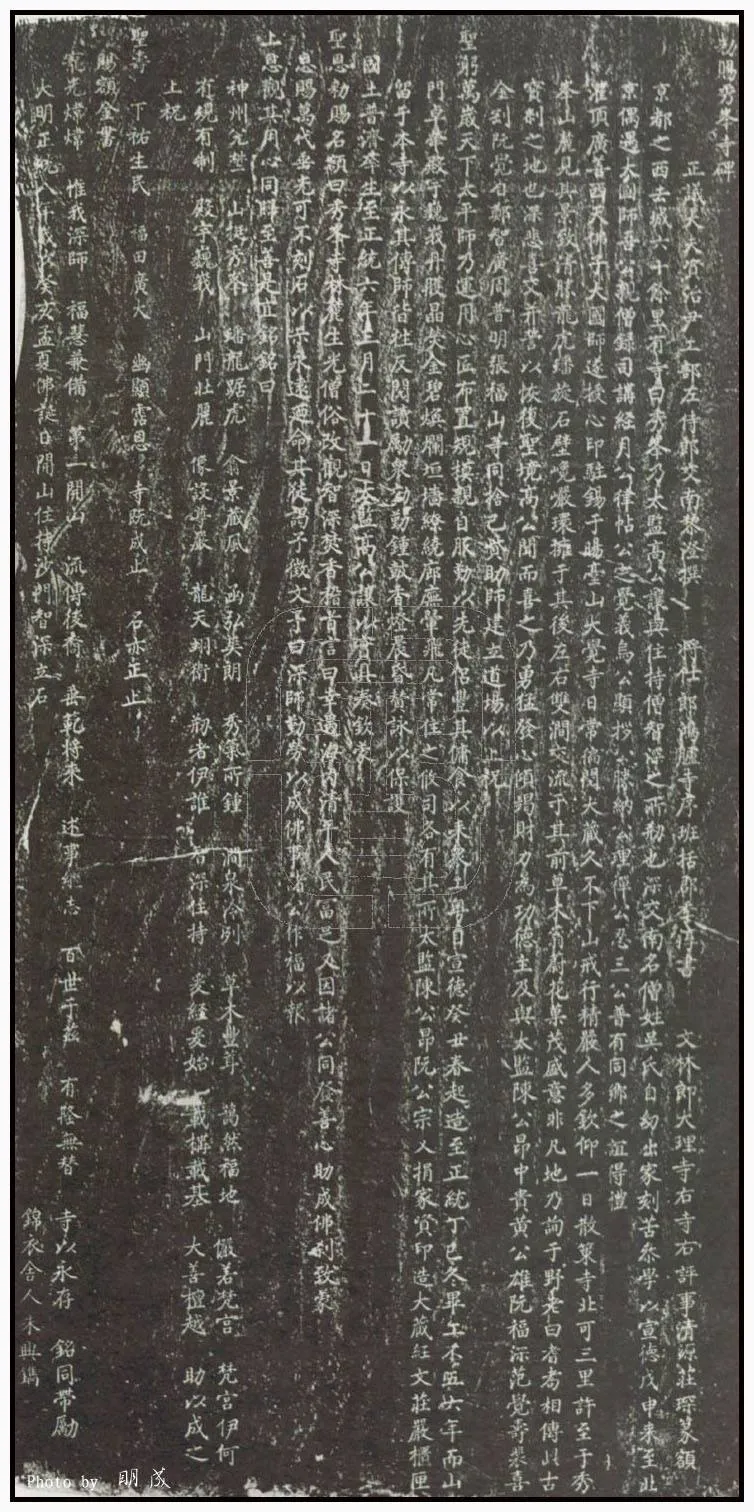 勅賜秀峯寺碑
正議大夫資治尹工部左侍郎交南黎澄撰 將仕郎鴻臚寺序班括郡 書 文林郎大理寺右寺右評事清源莊琛篆額
京都之西去城六十餘里有寺曰秀峯乃太監高公讓與住持僧智深之所剏也深交南名僧姓吳氏自幼出家刻苦叅學以宣德戊申來至北
京偶遇大國師吾公觀僧錄司講經月公律帖公之覺義烏公顯拶公勝納公理禪公忍三公普有同鄉之誼得禮
灌頂廣善西天佛子大國師遂授心印駐錫于暘臺山大覺寺日常偏閱大藏久不下山戒行精嚴人多欽仰一日散策寺北可三里許至于秀
峯山麓見其景致清幽龍虎蟠旋石壁巉巖環擁于其後左右雙澗交流于其前草木菁蔚花菓茂盛意非凡地乃詢于野老曰耆耉相傳此古
寶刹之地也深悲喜交幷營以恢復聖境高公聞而喜之乃勇猛發心傾竭財力為功德主及與太監陳公昂中貴黃公雄阮福深范覺壽裴喜
金到阮覺自鄭智廣周普明張福山等同捨己貲助師建立道場以上祝
聖躬萬歲天下太平師乃運用心匠布置規模親自服勤以先徒侶豐其傭食以來衆工粤自宣德癸丑春起造至正統丁巳冬畢工不五六年而山
門卓峯殿宇巍峩丹雘晶熒金碧煥爛垣墻繚繞廊廡翬飛凡常住之攸司各有其所太監陳公昂阮公宗人捐家貲印造大藏經文莊嚴櫃匣
留于本寺以永其傳師偕徒反閱讚勵衆初勤鐘鼓香燈晨昏賛詠以保護
國土普濟羣生至正統六年二月二十五日太監高公讓以壻具奏欽蒙
聖恩勅賜名額曰秀峯寺林麓生光僧俗改觀智深焚香稽首言曰幸遇海內清平人民富足又因諸公同發善心助成佛刹致蒙
恩賜萬代垂光可不刻石以示永遠廼命其徒謁予徵文予曰深師勤勞以成佛事者公作福以報
上恩觀其用心同歸至善是宜銘銘曰
神州堯壄 山挺秀峯 蟠龍踞虎 翕景藏風 函弘英朗 秀氣所鍾 澗泉泠冽 草木豐茸 藹然福地 儼若梵宮 梵宮伊何
有規有制 殿宇巍峩 山門壯麗 像設尊嚴 龍天翊衛 剏者伊誰 智深住持 爰經爰始 載構載基 大善檀越 助以成之
上祝
聖壽 下祐生民 福田廣大 幽顯霑恩 寺既成止 石亦正止
賜額金書
寵光燁燁 惟我深師 福慧兼備 第一開山 流傳後裔 垂範將來 述事繼志 百世千齡 有隆無替 寺以永存 銘同帶勵
大明正統八年歲次癸亥孟夏佛誕日開山住持沙門智深立石
錦衣舍人朱興鐫
Photo by 明成